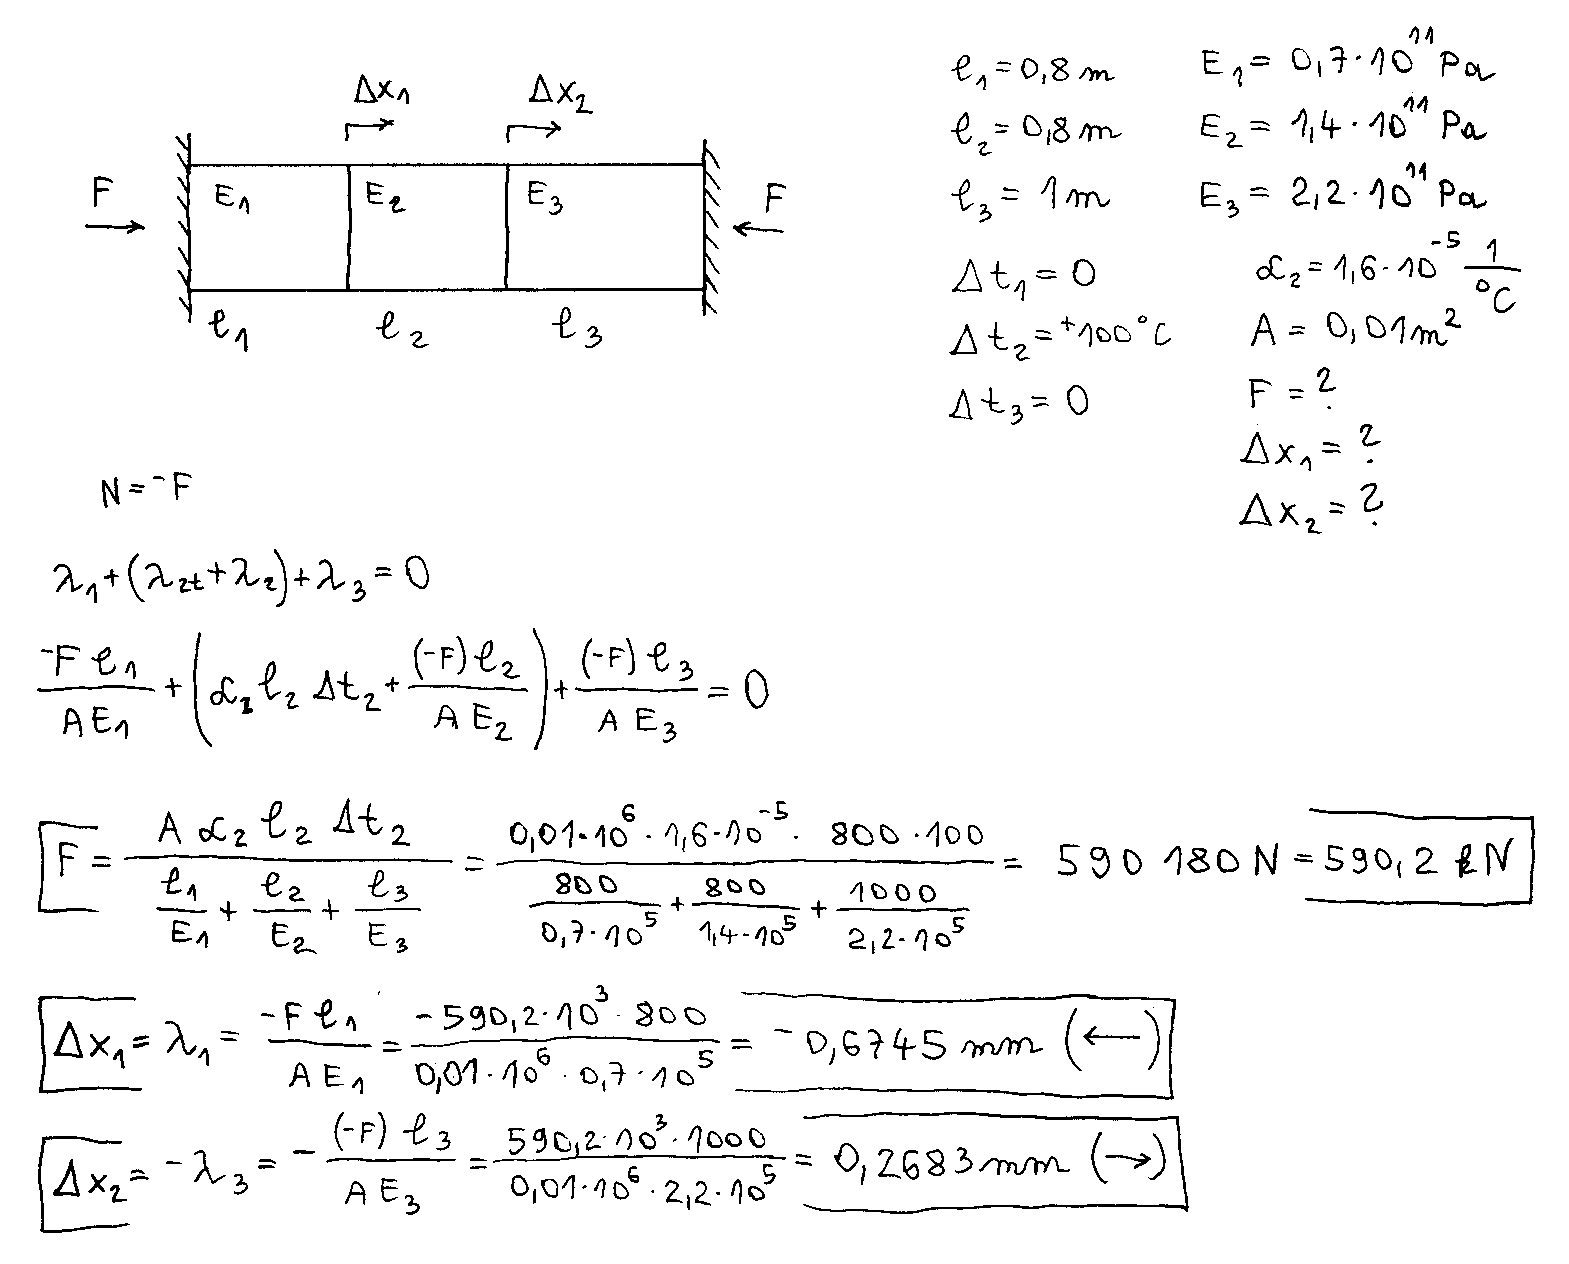 Δx₁ Δx₂
F E₁ E₂ E₃ F
ℓ₁ ℓ₂ ℓ₃
ℓ₁ = 0,8 m E₁ = 0,7·10¹¹ Pa
ℓ₂ = 0,8 m E₂ = 1,4·10¹¹ Pa
ℓ₃ = 1 m E₃ = 2,2·10¹¹ Pa
Δt₁ = 0 α₂ = 1,6·10⁻⁵ 1/°C
Δt₂ = +100 °C A = 0,01 m²
Δt₃ = 0 F = ?
Δx₁ = ?
Δx₂ = ?
N = -F
λ₁ + (λ₂ₜ + λ₂) + λ₃ = 0
-F ℓ₁ / A E₁ + (α₂ ℓ₂ Δt₂ + (-F) ℓ₂ / A E₂) + (-F) ℓ₃ / A E₃ = 0
F = A α₂ ℓ₂ Δt₂ / (ℓ₁/E₁ + ℓ₂/E₂ + ℓ₃/E₃) = 0,01·10⁶ · 1,6·10⁻⁵ · 800 · 100 / (800/0,7·10⁵ + 800/1,4·10⁵ + 1000/2,2·10⁵) = 590 180 N = 590,2 kN
Δx₁ = λ₁ = -F ℓ₁ / A E₁ = -590,2·10³ · 800 / 0,01·10⁶ · 0,7·10⁵ = -0,6745 mm (←)
Δx₂ = -λ₃ = - (-F) ℓ₃ / A E₃ = 590,2·10³ · 1000 / 0,01·10⁶ · 2,2·10⁵ = 0,2683 mm (→)